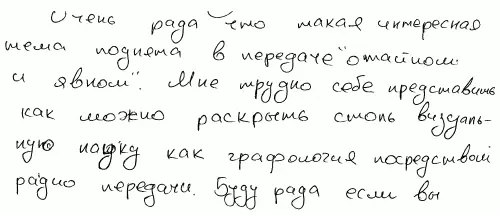 Очень рада что такая интересная
тема поднята в передаче "отайном
и явном". Мне трудно себе представить
как можно раскрыть столь визуаль-
ную науку как графология посредством
радио передачи. Буду рада если вы